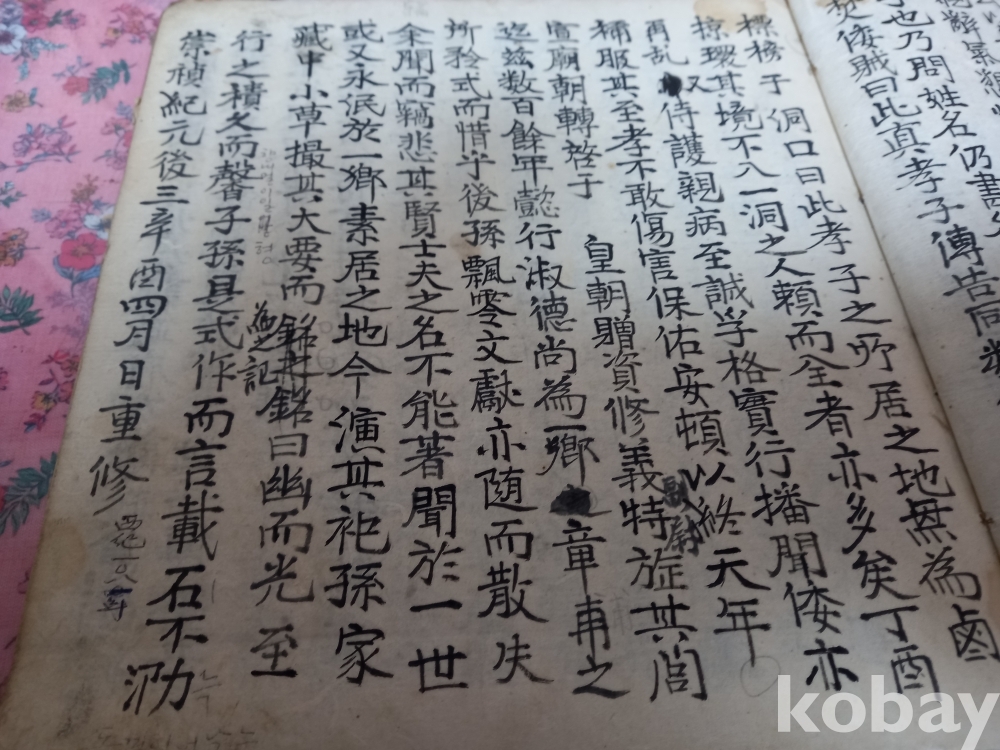 也乃問姓名仍書
焚倭賊曰此真孝子傳告同
標榜于洞口曰此孝子之所居之地無為鹵
掠環其境不入一洞之人賴而全者亦多矣丁酉
再乱又侍護親病至誠孚格實行播聞倭亦
稱服其至孝不敢傷害保佑安頓以終天年
宣廟朝轉啓于 皇朝贈資修義特旌其閭
副尉
迄茲数百餘年懿行淑德尚為一鄉章甫之
所矜式而惜乎後孫飄零文獻亦随而散失
余聞而竊悲其賢士夫之名不能著聞於一世
或又永泯於一鄉素居之地今演其祀孫家
藏中小草撮其大要而銘銘曰幽而光至
為之記
行之積久而馨子孫是式作而言載石不泐
崇禎紀元後三辛酉四月日重修
西紀一八
kobay